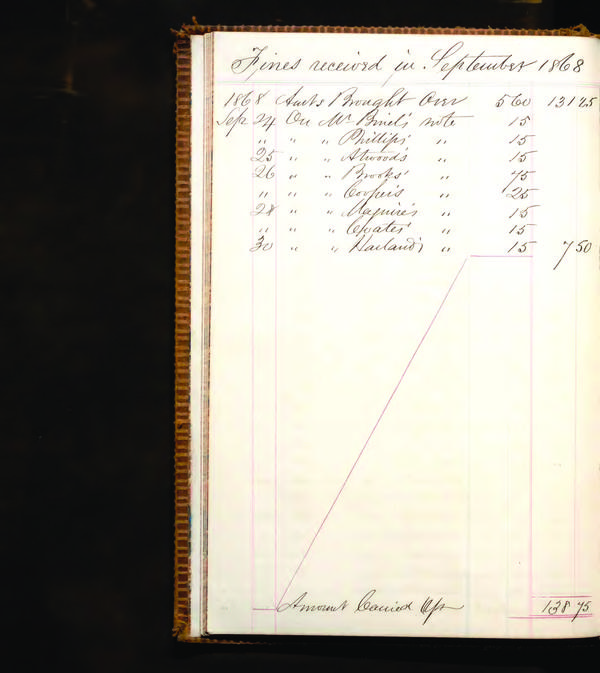 Fines received in September 1868
1868 Amts Brought Over 5 60 131 25
Sep 24 On Mr Binel's note 15
" " " Phillips' " 15
25 " " Atwood's " 15
26 " " Brooks' " 75
" " " Cooper's " 25
28 " " Maguire's " 15
" " " Coates' " 15
30 " " Harland's " 15 7 50
Amount Carried Up 138 75